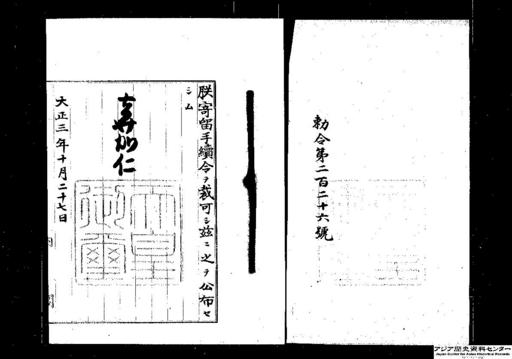 勅令第二百二十六號
朕寄留手續令ヲ裁可シ茲ニ之ヲ公布セ
シム
嘉仁
天皇御璽
大正三年十月二十七日
内閣
アジア歴史資料センター
Japan Center for Asian Historical Records